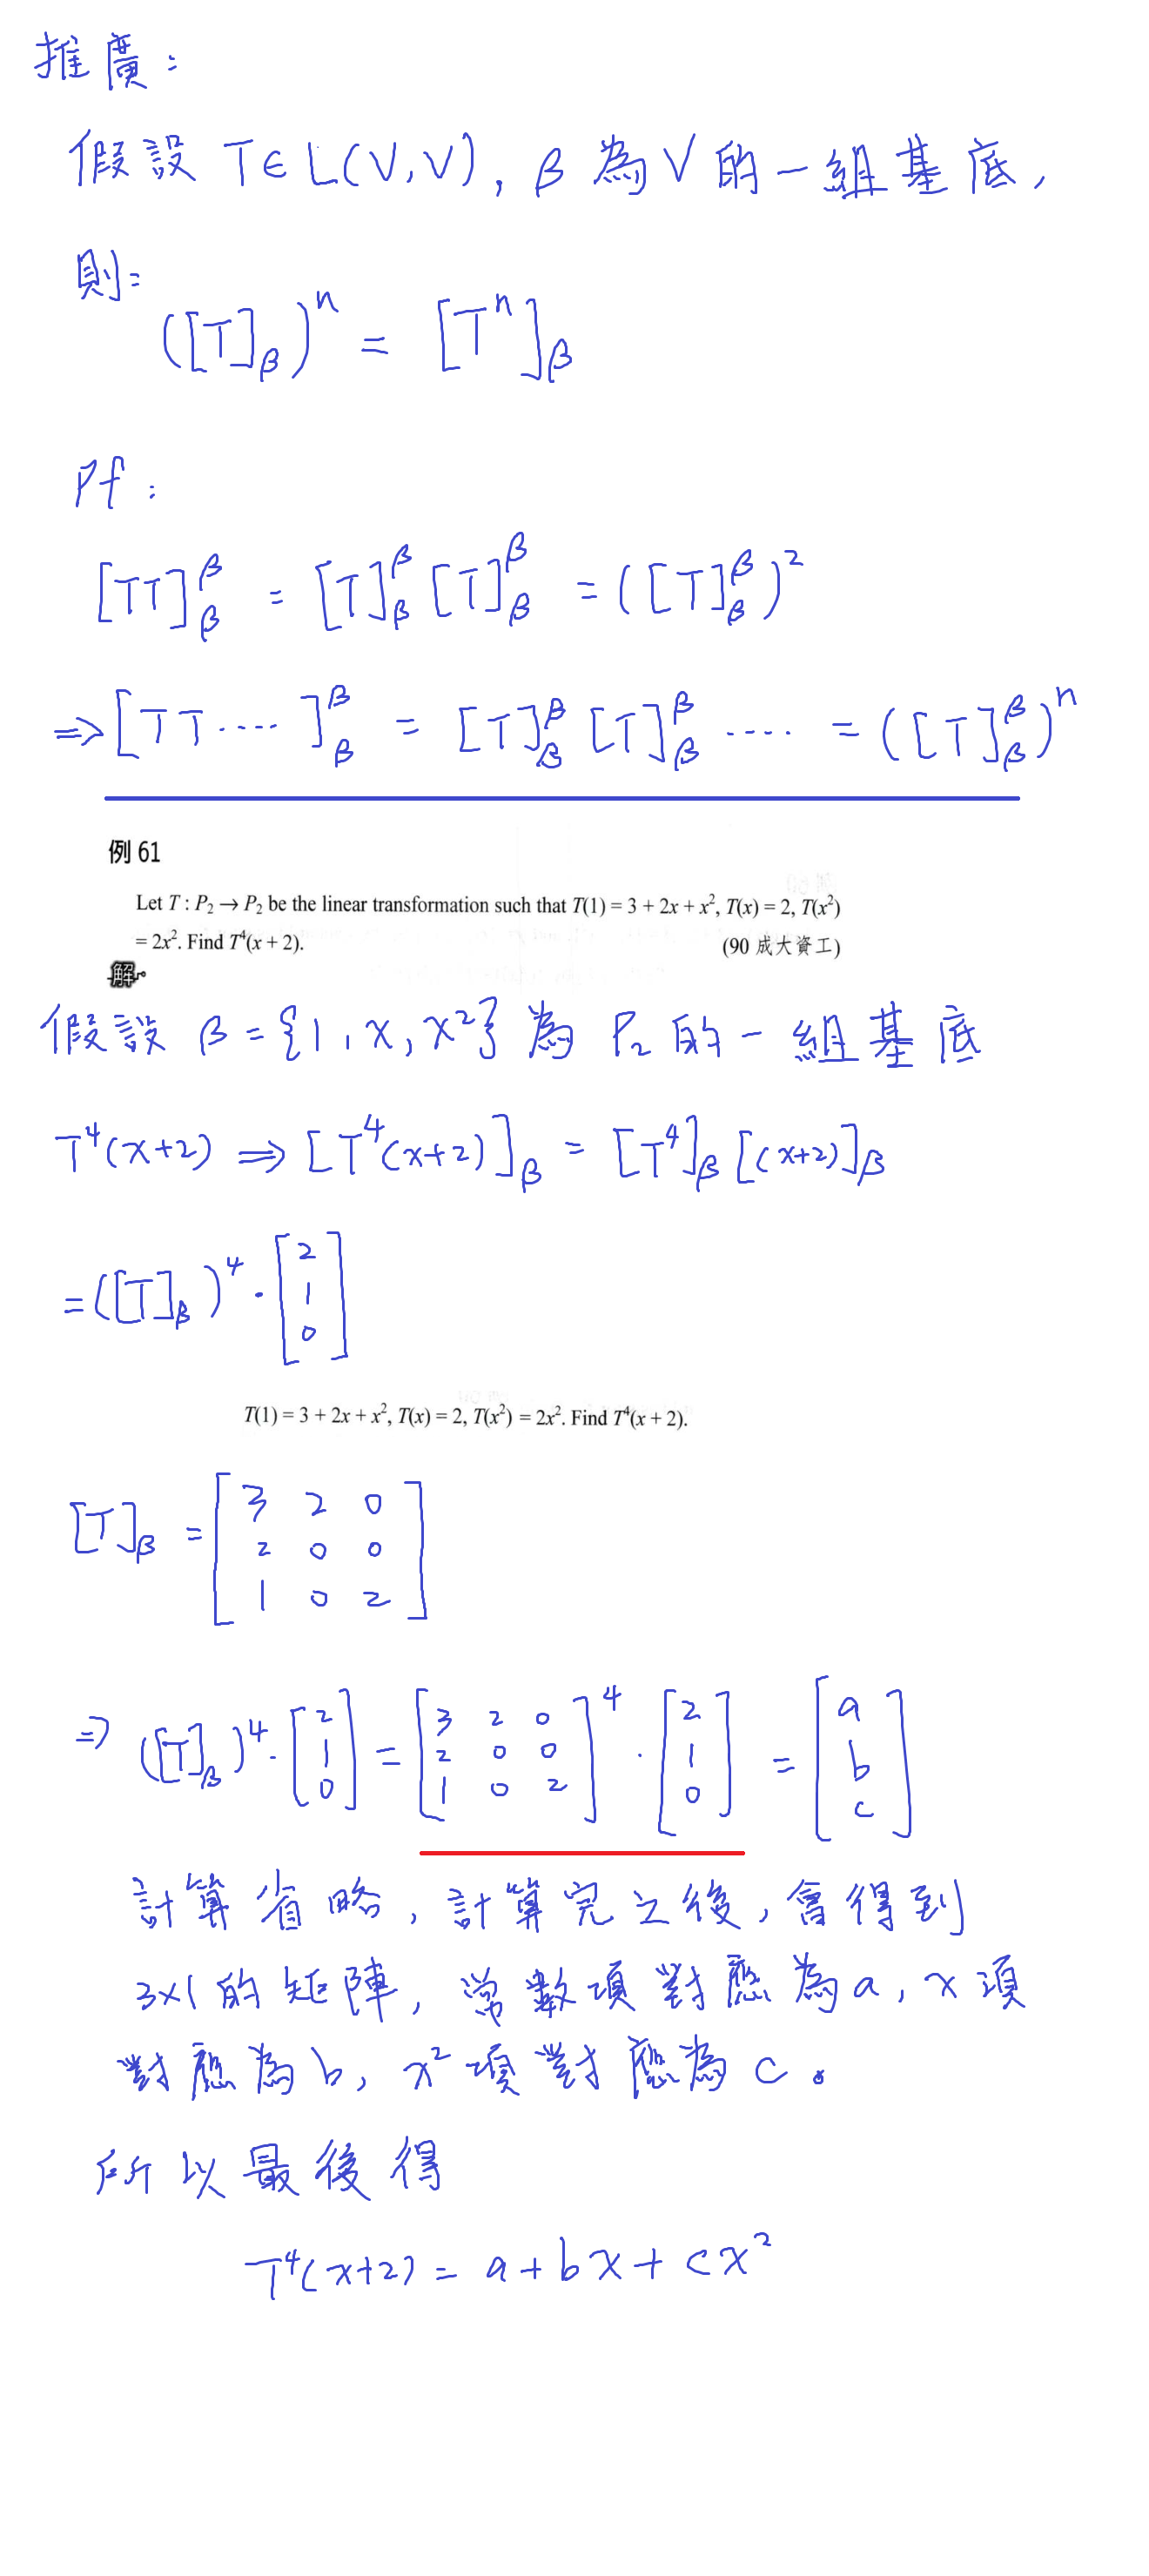 推廣：
假設 T∈L(V,V), β 為 V 的一組基底,
則：
([T]_β)^n = [T^n]_β
Pf：
[TT]_β^β = [T]_β^β [T]_β^β = ([T]_β^β)^2
⇒ [TT‧‧‧‧]_β^β = [T]_β^β [T]_β^β ‧‧‧‧ = ([T]_β^β)^n
例 61
Let T : P₂ → P₂ be the linear transformation such that T(1) = 3 + 2x + x², T(x) = 2, T(x²)
= 2x². Find T⁴(x + 2). (90 成大資工)
解
假設 β = {1, x, x²} 為 P₂ 的一組基底
T⁴(x+2) ⇒ [T⁴(x+2)]_β = [T⁴]_β [(x+2)]_β
= ([T]_β)⁴ · [2 1 0]
T(1) = 3 + 2x + x², T(x) = 2, T(x²) = 2x². Find T⁴(x + 2).
[T]_β = [3 2 0
2 0 0
1 0 2]
⇒ ([T]_β)⁴ · [2 1 0] = [3 2 0 2 0 0 1 0 2]⁴ · [2 1 0] = [a b c]
計算省略, 計算完之後, 會得到
3×1 的矩陣, 常數項對應為 a, x 項
對應為 b, x² 項對應為 c。
所以最後得
T⁴(x+2) = a + bx + cx²